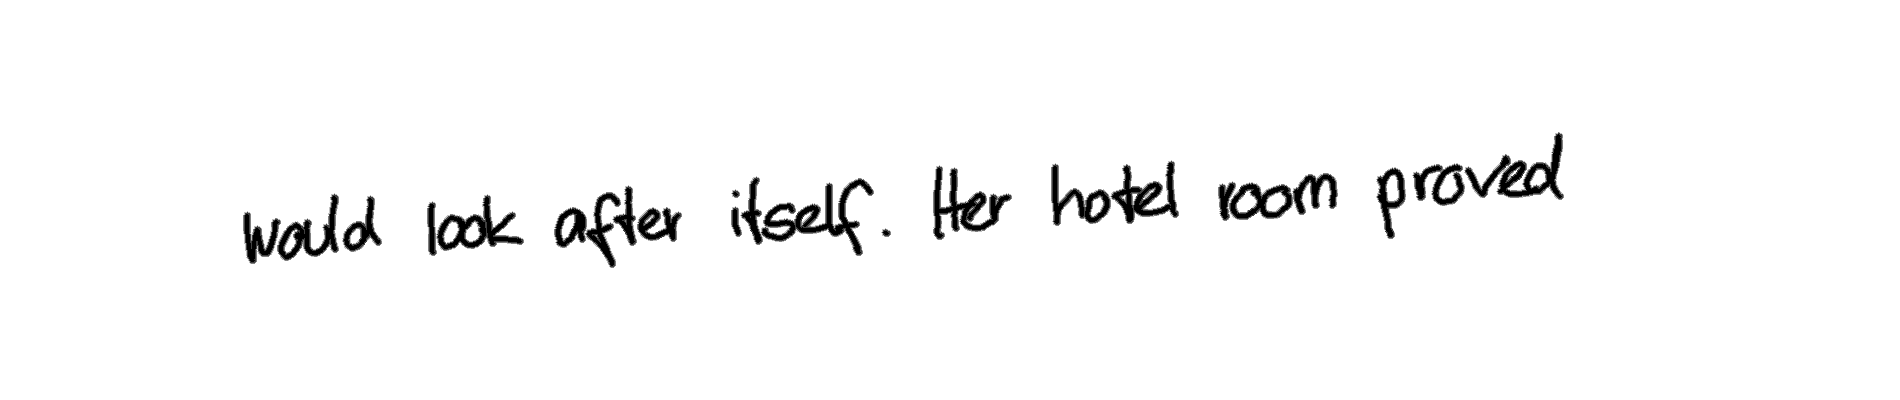 would look after itself. Her hotel room proved